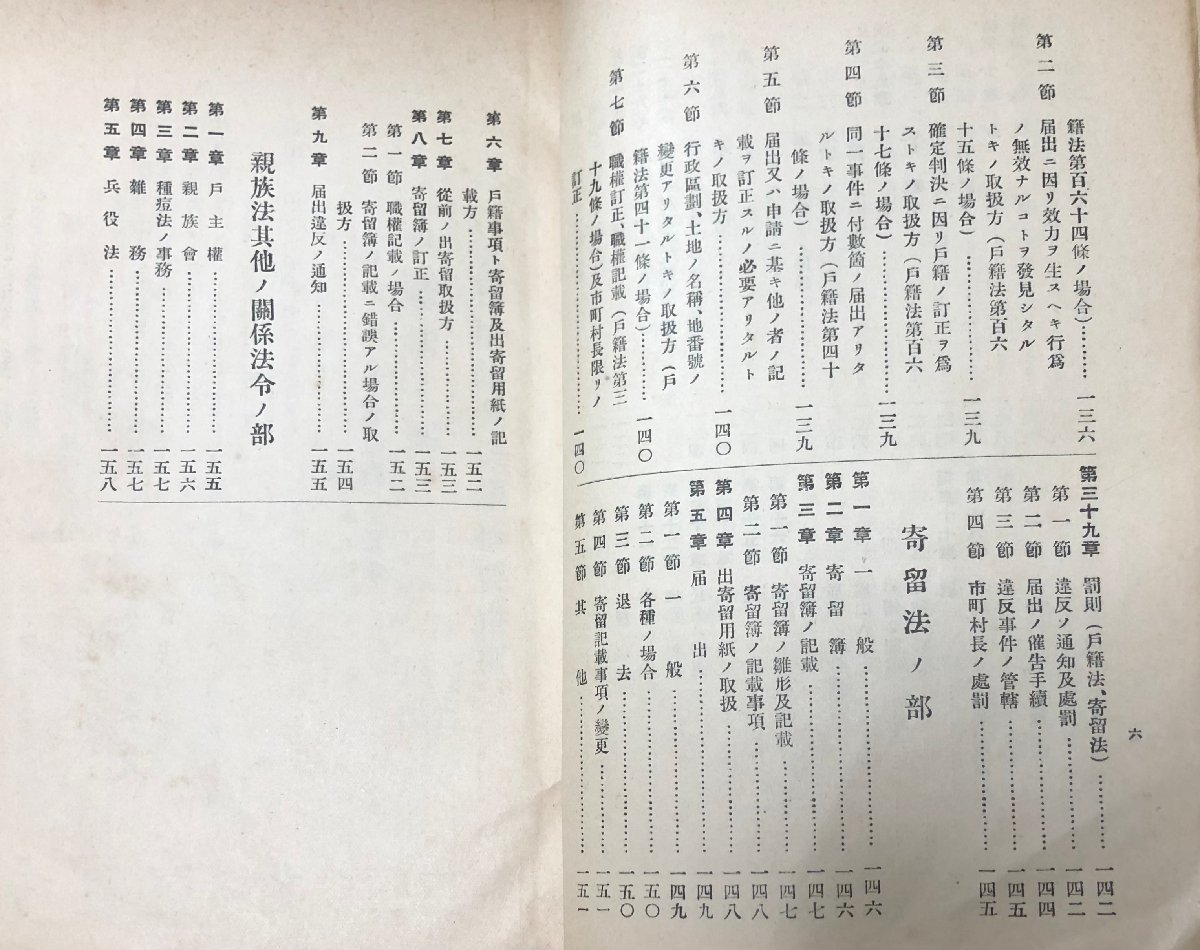 籍法第百六十四條ノ場合）………一三六
第二節　届出ニ因リ效力ヲ生スヘキ行爲
ノ無效ナルコトヲ發見シタル
トキノ取扱方（戸籍法第百六
十五條ノ場合）………一三九
第三節　確定判決ニ因リ戸籍ノ訂正ヲ爲
ストキノ取扱方（戸籍法第百六
十七條ノ場合）………一三九
第四節　同一事件ニ付數箇ノ届出アリタ
ルトキノ取扱方（戸籍法第四十
條ノ場合）………一三九
第五節　届出又ハ申請ニ基キ他ノ者ノ記
載ヲ訂正スルノ必要アリタルト
キノ取扱方………一四〇
第六節　行政區劃、土地ノ名稱、地番號ノ
變更アリタルトキノ取扱方（戸
籍法第四十一條ノ場合）………一四〇
第七節　職權訂正、職權記載（戸籍法第三
十九條ノ場合）及市町村長限リノ
訂正………一四〇
第三十九章　罰則（戸籍法、寄留法）………一四二
第一節　違反ノ通知及處罰………一四二
第二節　届出ノ催告手續………一四四
第三節　違反事件ノ管轄………一四五
第四節　市町村長ノ處罰………一四五
寄留法ノ部
第一章　一般………一四六
第二章　寄留簿………一四六
第三章　寄留簿ノ記載………一四七
第一節　寄留簿ノ雛形及記載………一四七
第二節　寄留簿ノ記載事項………一四八
第四章　出寄留用紙ノ取扱………一四八
第五章　届出………一四九
第一節　一般………一四九
第二節　各種ノ場合………一五〇
第三節　退去………一五〇
第四節　寄留記載事項ノ變更………一五一
第五節　其他………一五一
六
第六章　戸籍事項ト寄留簿及出寄留用紙ノ記
載方………一五二
第七章　從前ノ出寄留取扱方………一五三
第八章　寄留簿ノ訂正………一五三
第一節　職權記載ノ場合………一五二
第二節　寄留簿ノ記載ニ錯誤アル場合ノ取
扱方………一五四
第九章　届出違反ノ通知………一五五
親族法其他ノ關係法令ノ部
第一章　戸主權………一五五
第二章　親族會………一五六
第三章　種痘法ノ事務………一五七
第四章　雜務………一五七
第五章　兵役法………一五八